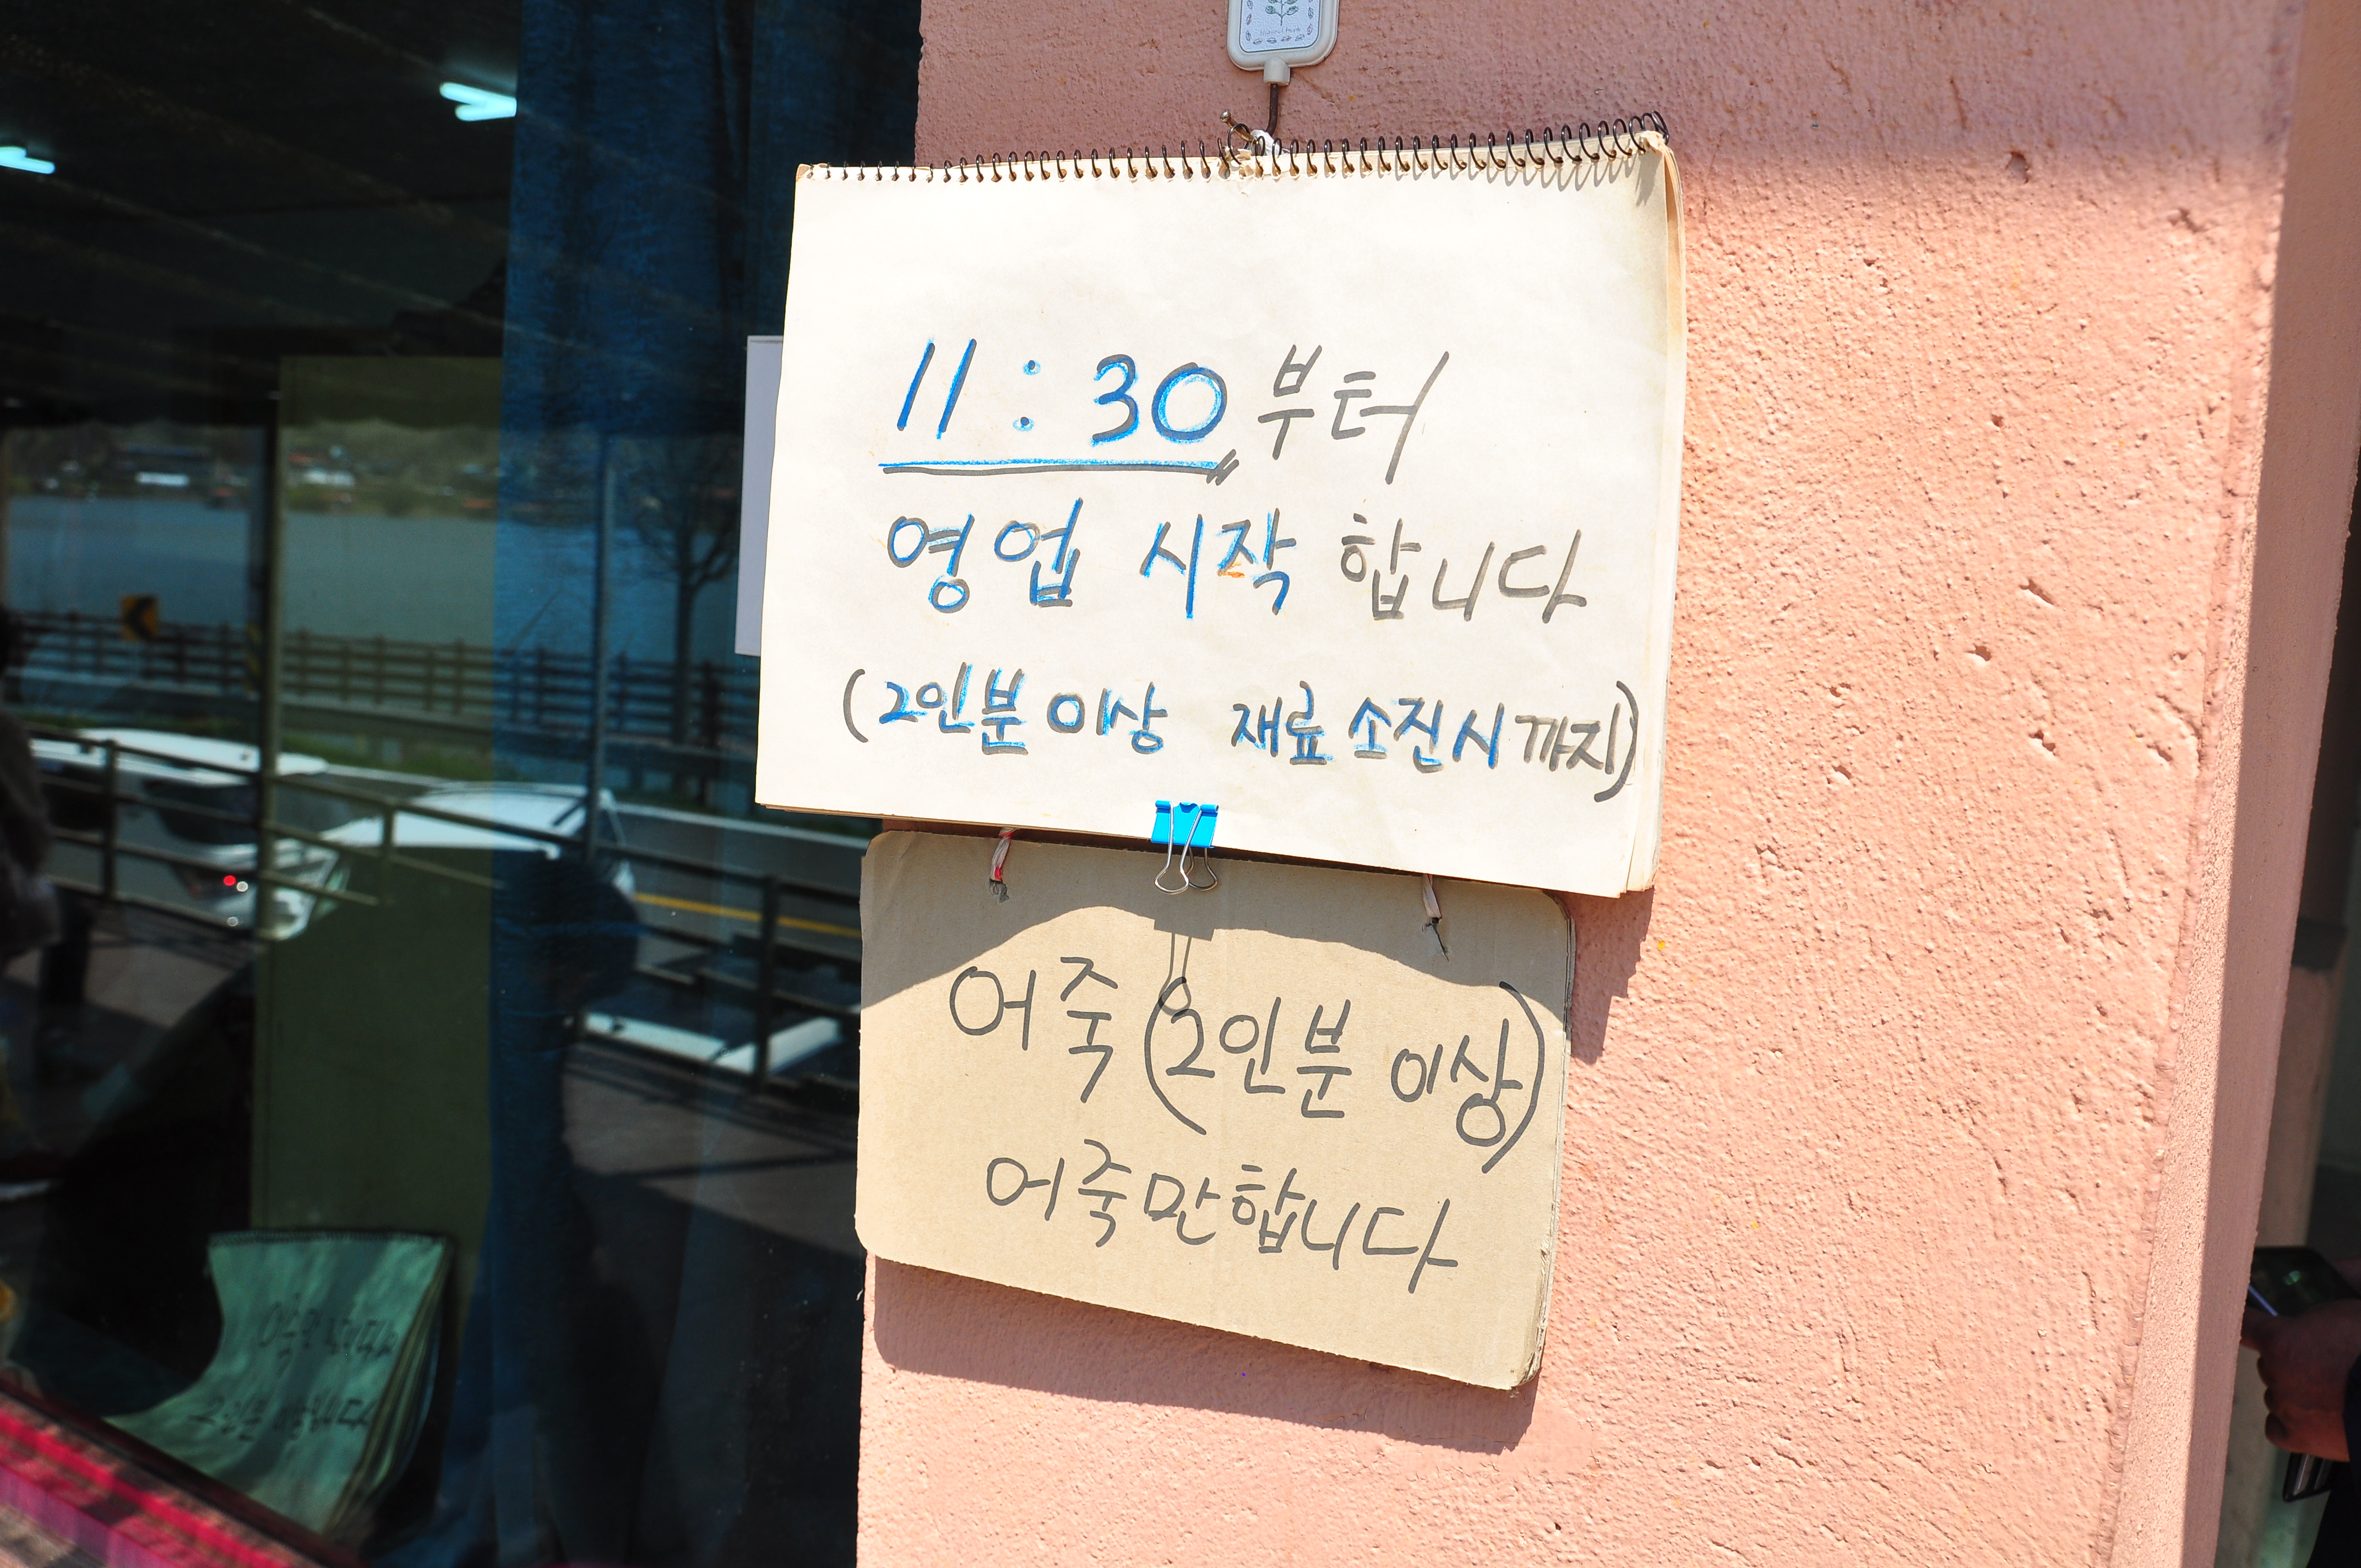 11:30부터
영업 시작 합니다
(2인분 이상 재료 소진시 까지)
어죽 (2인분 이상)
어죽만합니다